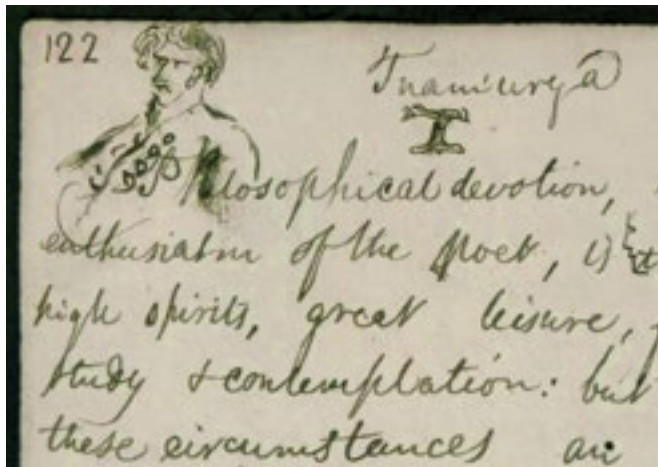 122
I
Philosophical devotion,
enthusiasm of the Poet, is
high spirits, great leisure,
study & contemplation: but
these circumstances an